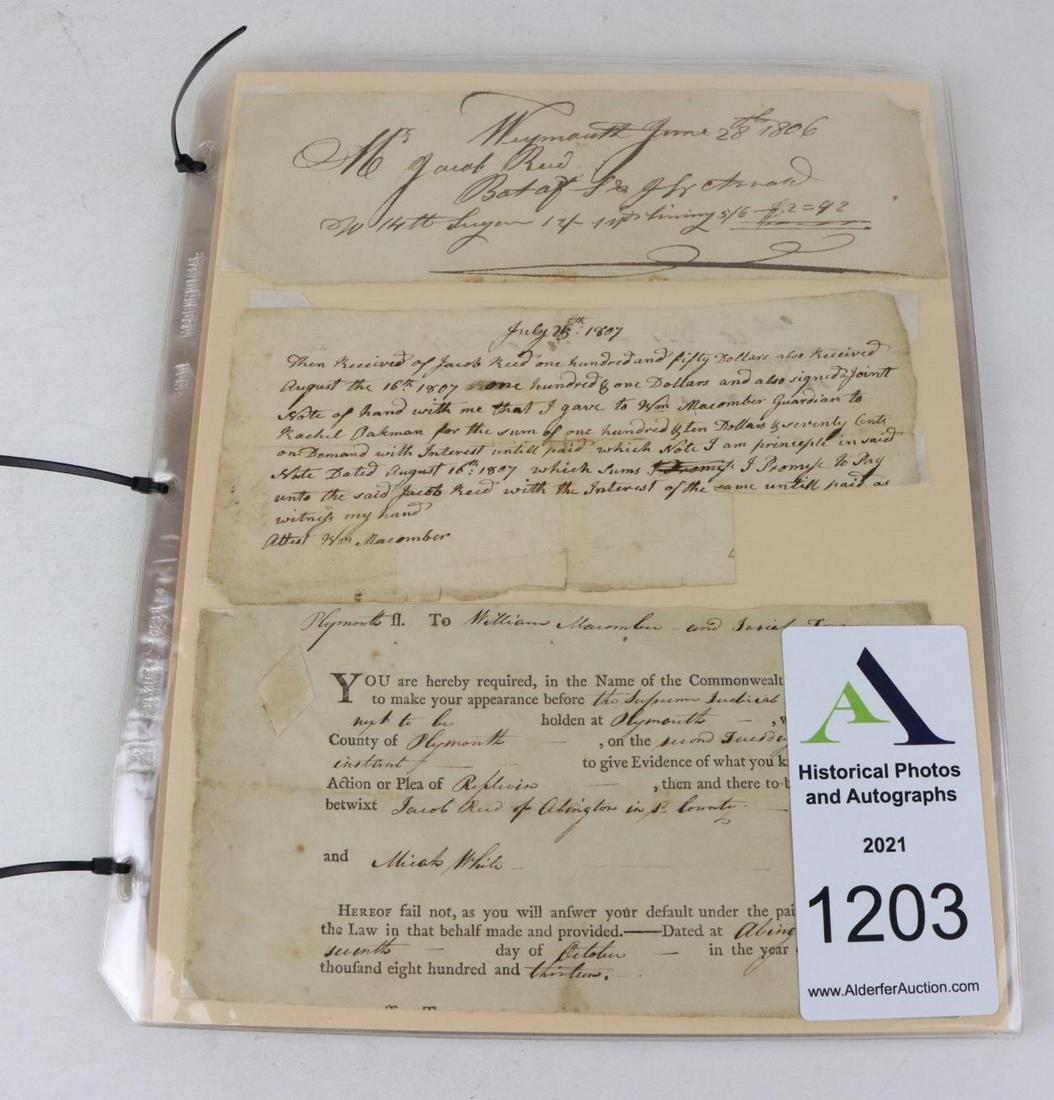 Weymouth June 28th 1806
Mr Jacob Reed
Bot of
14 lb Sugar 12/- lining 5/6 $2=92
July 25th: 1807
Then Received of Jacob Reed one hundred and fifty Dollars also Received
August the 16th 1807 one hundred & one Dollars and also signed a Joint
Note of hand with me that I gave to Wm Macomber Guardian to
Rachel Oakman for the sum of one hundred & ten Dollars & seventy Cents
on Demand with Interest untill paid which Note I am principle in said
Note Dated August 16th: 1807 which Sums I Promise I Promise To Pay
unto the said Jacob Reed with the Interest of the same untill paid as
witness my hand
Attest Wm Macomber
Plymouth ſſ. To William Macomber and
YOU are hereby required, in the Name of the Commonwealt
to make your appearance before the Suprem Judicial
next to be holden at Plymouth
County of Plymouth , on the second Tuesday
instant to give Evidence of what you k
Action or Plea of Replevin , then and there to b
betwixt Jacob Reed of Abington in sd. County
and Micah White
HEREOF fail not, as you will anſwer your default under the pai
the Law in that behalf made and provided.——Dated at Abing
seventh day of October in the year
thouſand eight hundred and thirteen.
Historical Photos
and Autographs
2021
1203
www.AlderferAuction.com